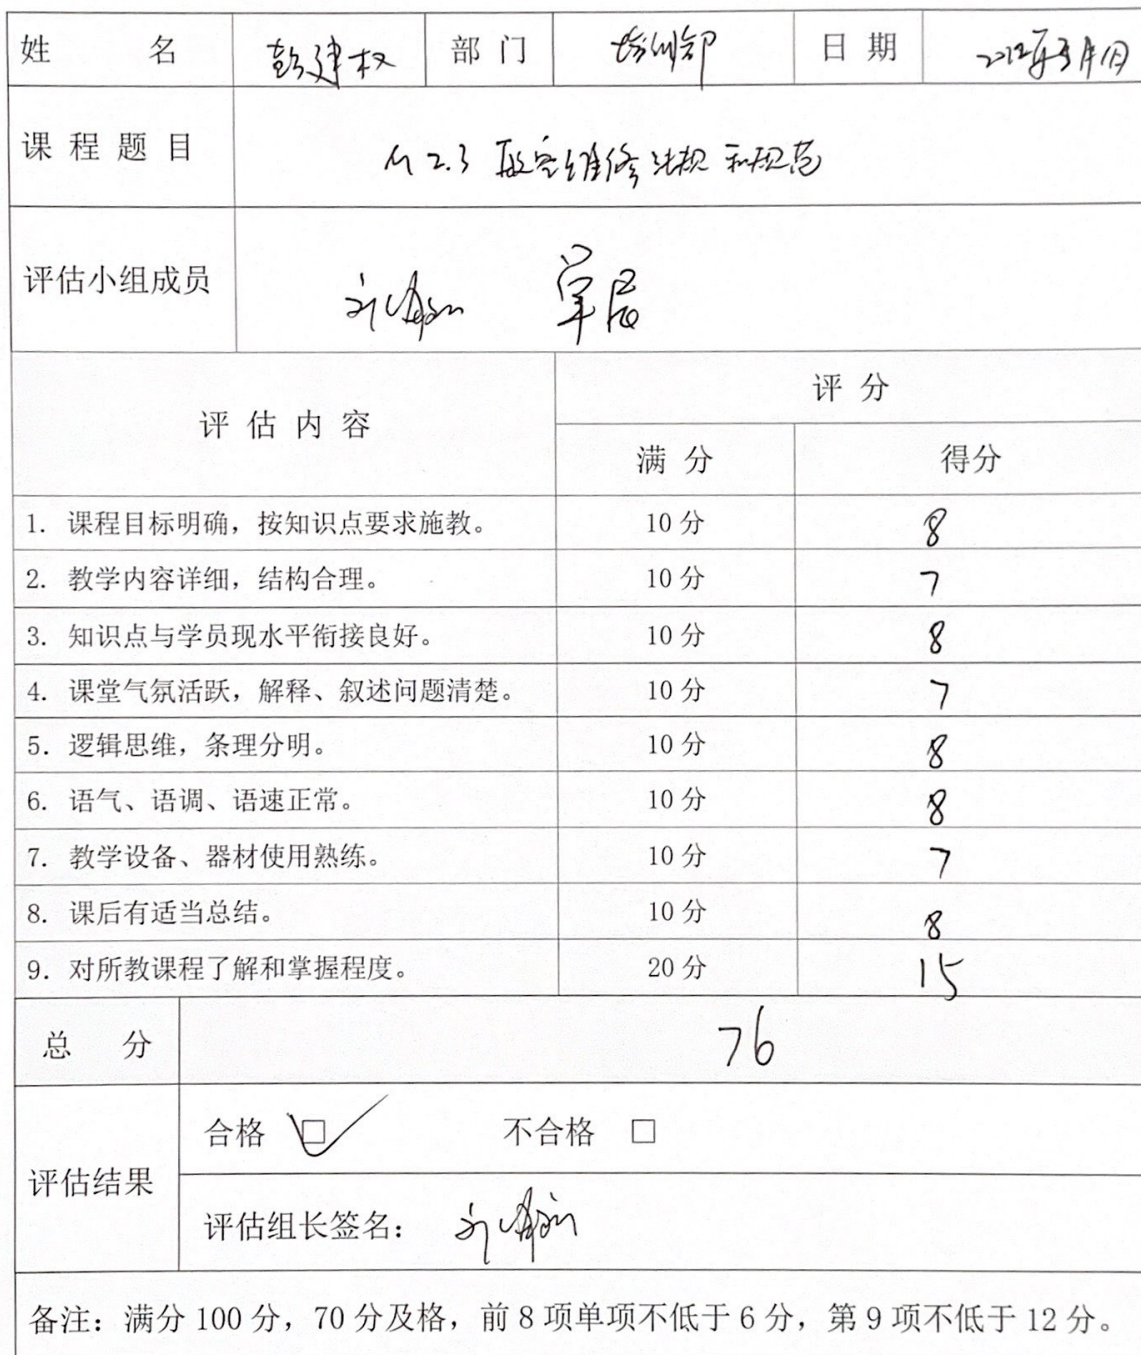 姓 名 彭建权 部 门 培训部 日 期
课 程 题 目 M2.3 航空维修法规和规范
评估小组成员 单居
评 估 内 容 评 分
满 分 得分
1. 课程目标明确，按知识点要求施教。 10 分 8
2. 教学内容详细，结构合理。 10 分 7
3. 知识点与学员现水平衔接良好。 10 分 8
4. 课堂气氛活跃，解释、叙述问题清楚。 10 分 7
5. 逻辑思维，条理分明。 10 分 8
6. 语气、语调、语速正常。 10 分 8
7. 教学设备、器材使用熟练。 10 分 7
8. 课后有适当总结。 10 分 8
9. 对所教课程了解和掌握程度。 20 分 15
总 分 76
评估结果 合格 ☑ 不合格 □
评估组长签名：
备注：满分 100 分，70 分及格，前 8 项单项不低于 6 分，第 9 项不低于 12 分。